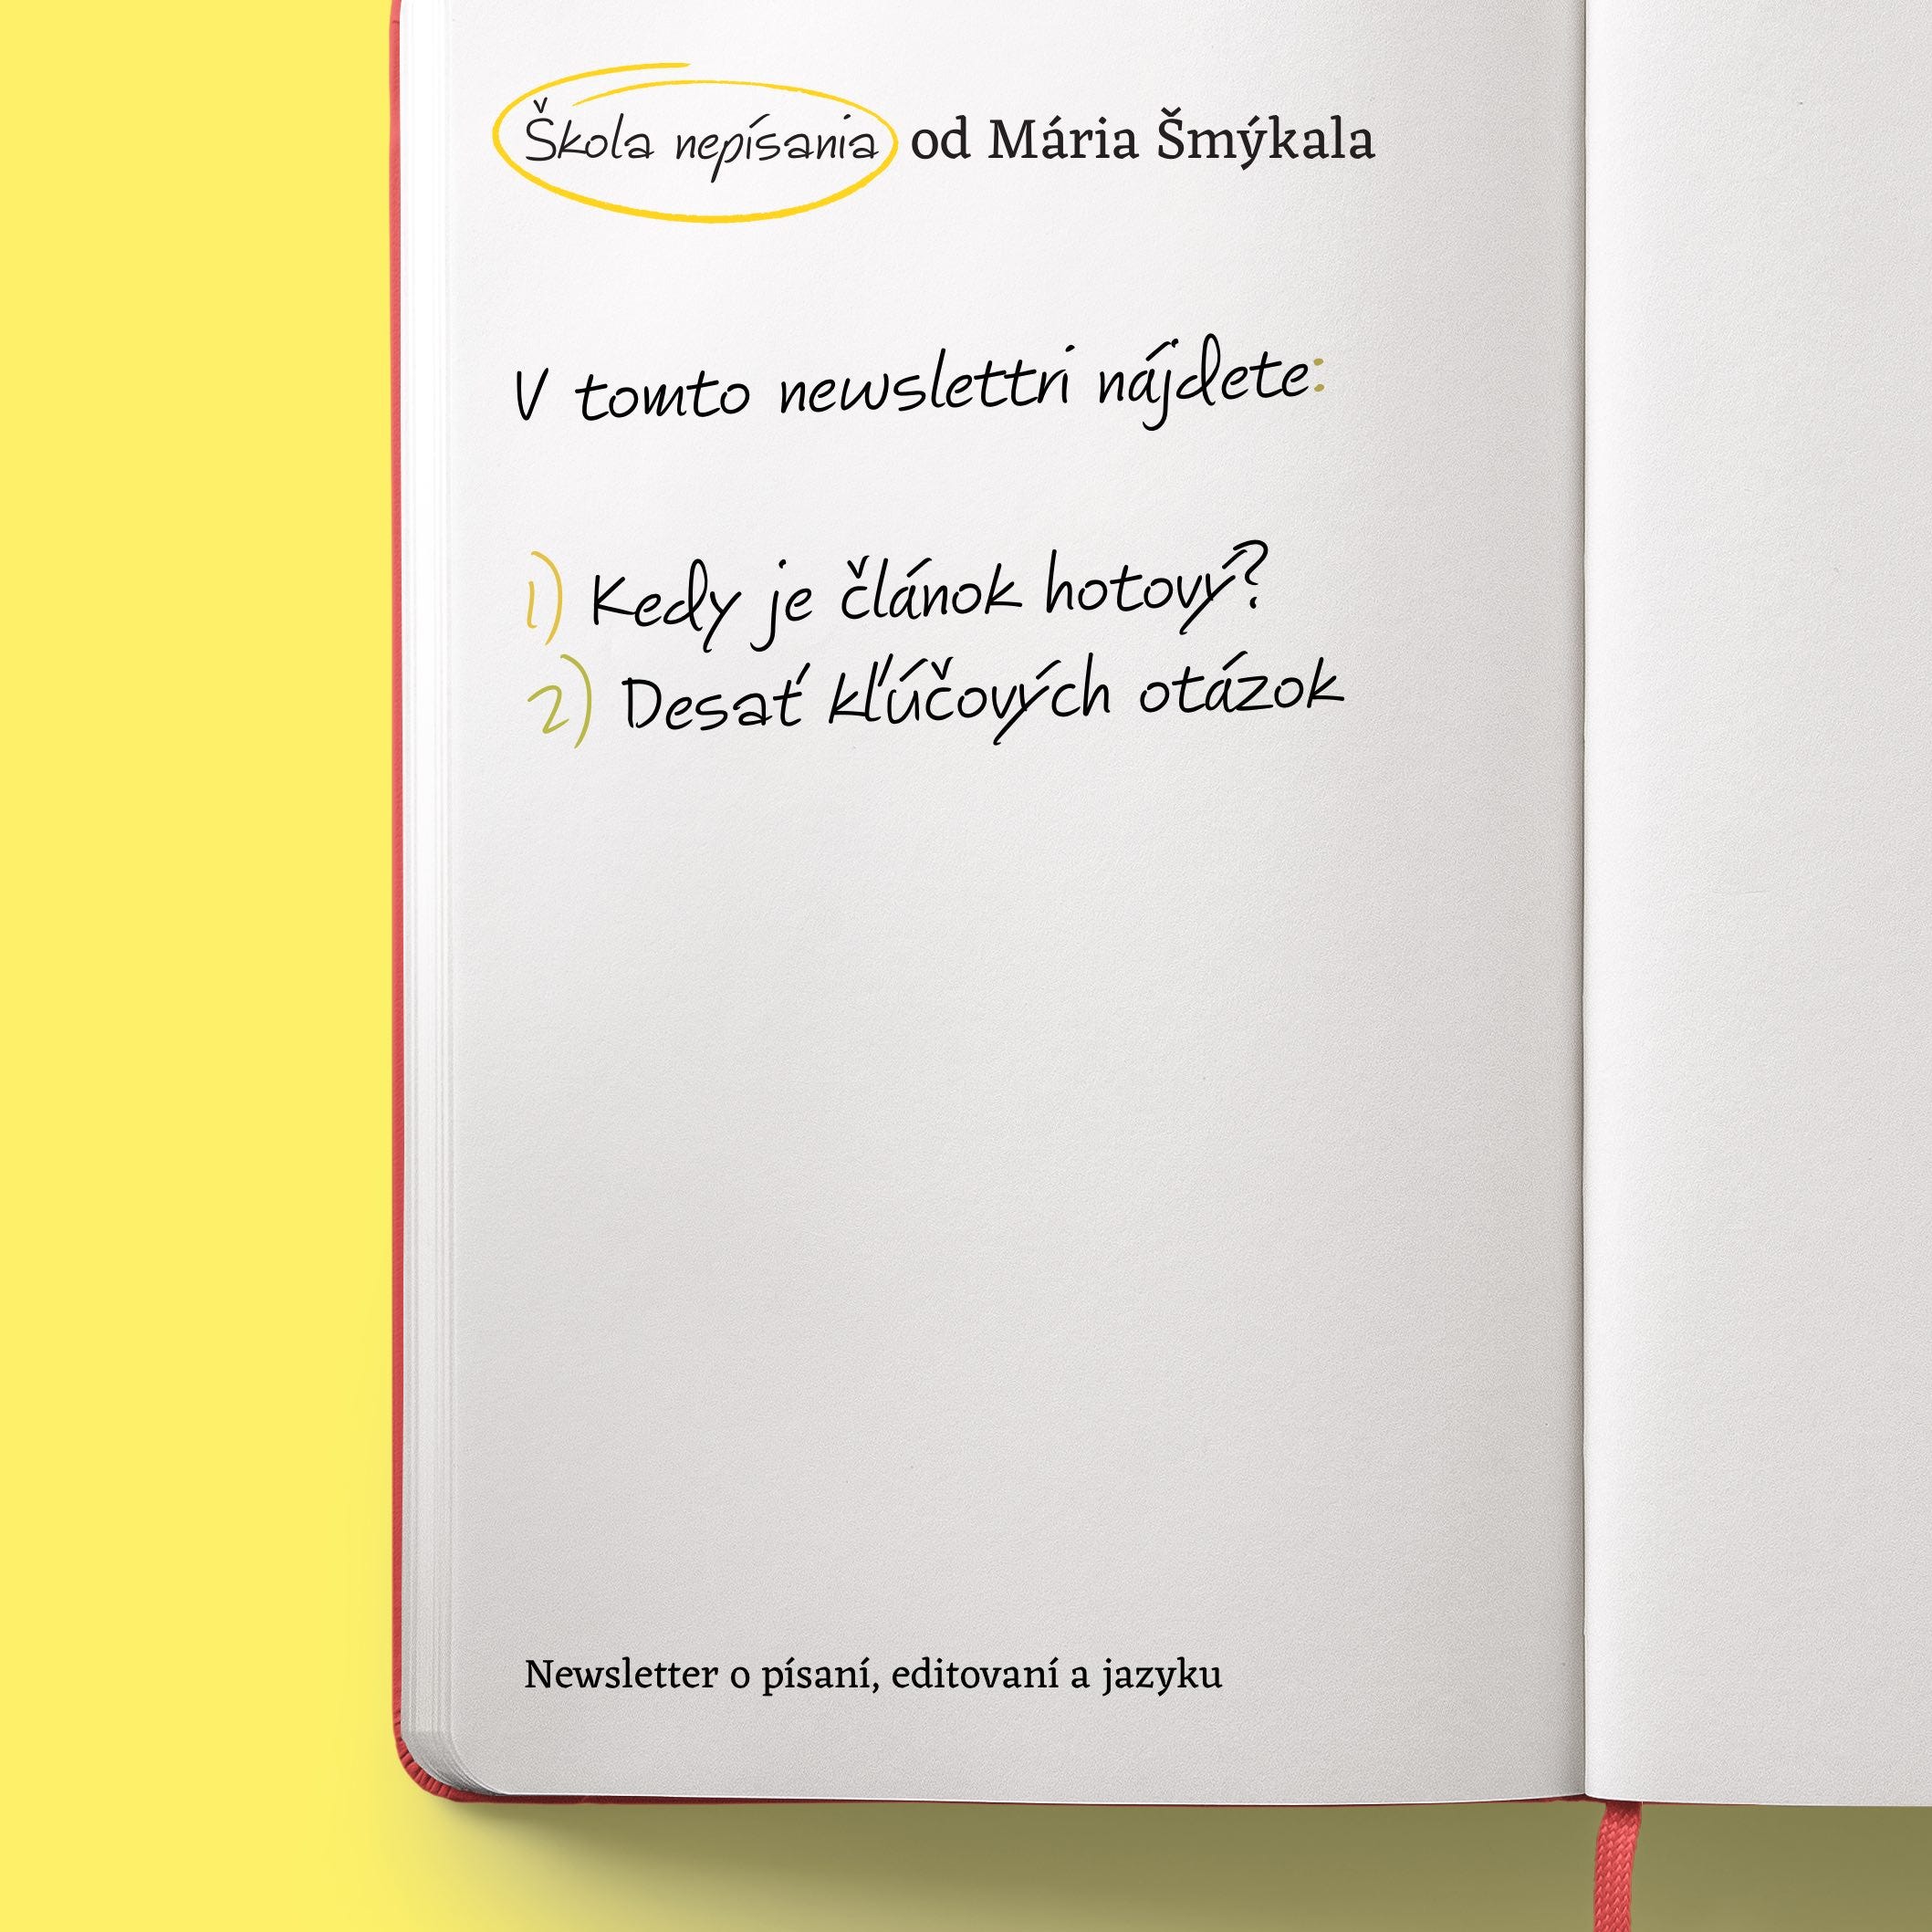 Škola nepísania od Mária Šmýkala
V tomto newslettri nájdete:
1) Kedy je článok hotový?
2) Desať kľúčových otázok
Newsletter o písaní, editovaní a jazyku